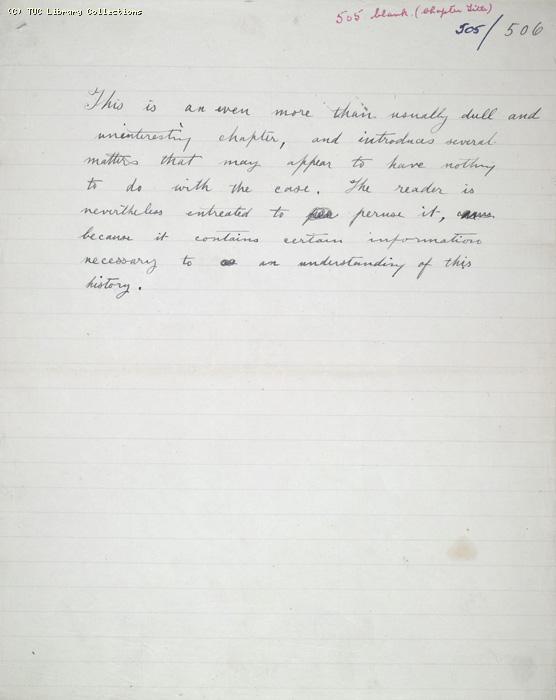 (C) TUC Library Collections
505 blank. (Chapter Title)
505/506
This is an even more than usually dull and
uninteresting chapter, and introduces several
matters that may appear to have nothing
to do with the case. The reader is
nevertheless entreated to peruse it,
because it contains certain information
necessary to an understanding of this
history.